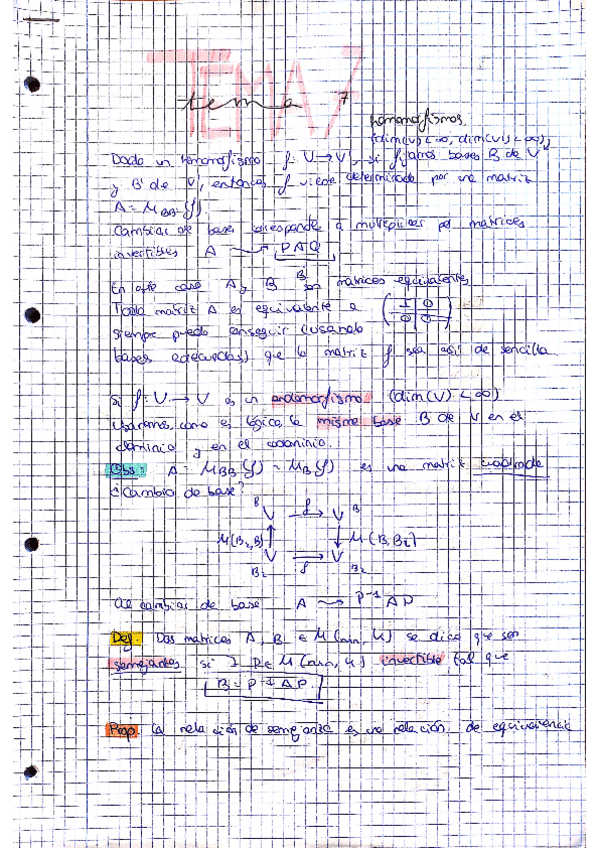 TEMA 7
tema 7
homomorfismos.
(dim(V) < ∞, dim(V') < ∞),
Dado un homomorfismo f: V → V', si fijamos bases B de V
y B' de V', entonces f viene determinado por una matriz
A = M_BB'(f)
Cambiar de bases corresponde a multiplicar por matrices
invertibles A ⟿ PAQ
B
En este caso A y B son matrices equivalentes
Toda matriz A es equivalente a (I 0 / 0 0)
siempre puedo conseguir (usando
bases adecuadas) que la matriz f sea así de sencilla.
Si f: V → V es un endomorfismo (dim(V) < ∞)
usaremos, como es lógico, la misma base B de V en el
dominio y en el codominio.
Obs: A = M_BB(f) = M_B(f) es una matriz cuadrada
¿Cambio de base?
B V f→ V B
M(B₂,B) ↑ ↓ M(B,B₂)
V → V
B₂ f B₂
Al cambiar de base A ⟿ P⁻¹AP
Def: Dos matrices A, B ∈ M(nxn, K) se dice que son
semejantes si ∃ P ∈ M(nxn, K) invertible tal que
B = P⁻¹AP
Prop. La relación de semejanza es una relación de equivalencia